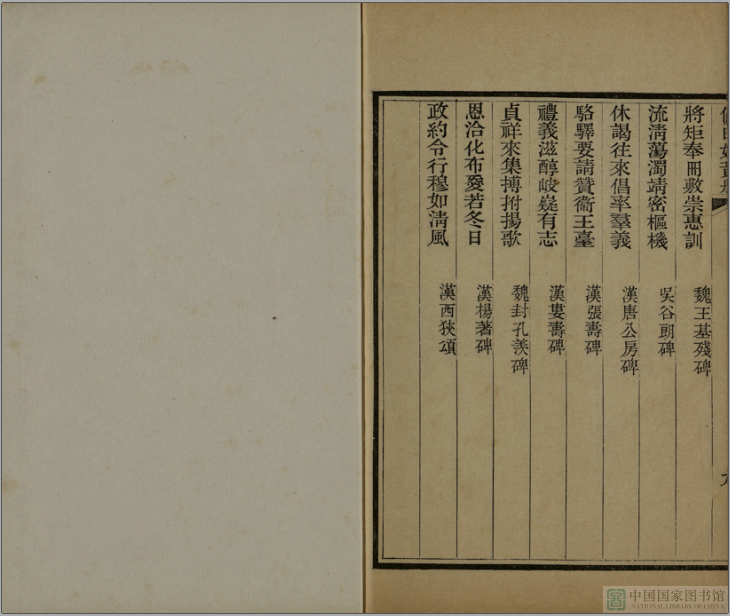 將矩奉冊敷崇惠訓 魏王基殘碑
流淸蕩濁靖密樞機 吳谷朗碑
休謁往來倡率羣義 漢唐公房碑
駱驛要請贊衞王臺 漢張壽碑
禮義滋醇岐嶷有志 漢婁壽碑
貞祥來集搏拊揚歌 魏封孔羨碑
恩洽化布愛若冬日 漢楊著碑
政約令行穆如淸風 漢西狹頌
中国国家图书馆
NATIONAL LIBRARY OF CHINA